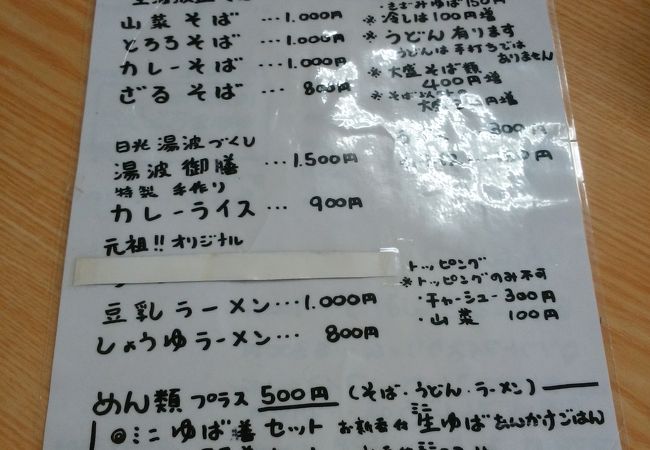 山菜そば …1.000円
とろろそば …1.000円
カレーそば …1.000円
ざるそば … 800円
きざみゆば150円
※冷しは100円増
※うどん有ります
うどんは手打ちでは
ありません
※大盛そば類
400円増
※そば
円増
300円
日光湯波づくし
湯波御膳 …1.500円
特製 手作り
カレーライス … 900円
元祖!!オリジナル
豆乳ラーメン…1.000円
しょうゆラーメン… 800円
トッピング
※トッピングのみ不可
・チャーシュー300円
・山菜 100円
めん類プラス 500円(そば・うどん・ラーメン)
◎ミニゆば膳セット お新香付 ミニ生ゆばあんかけごはん